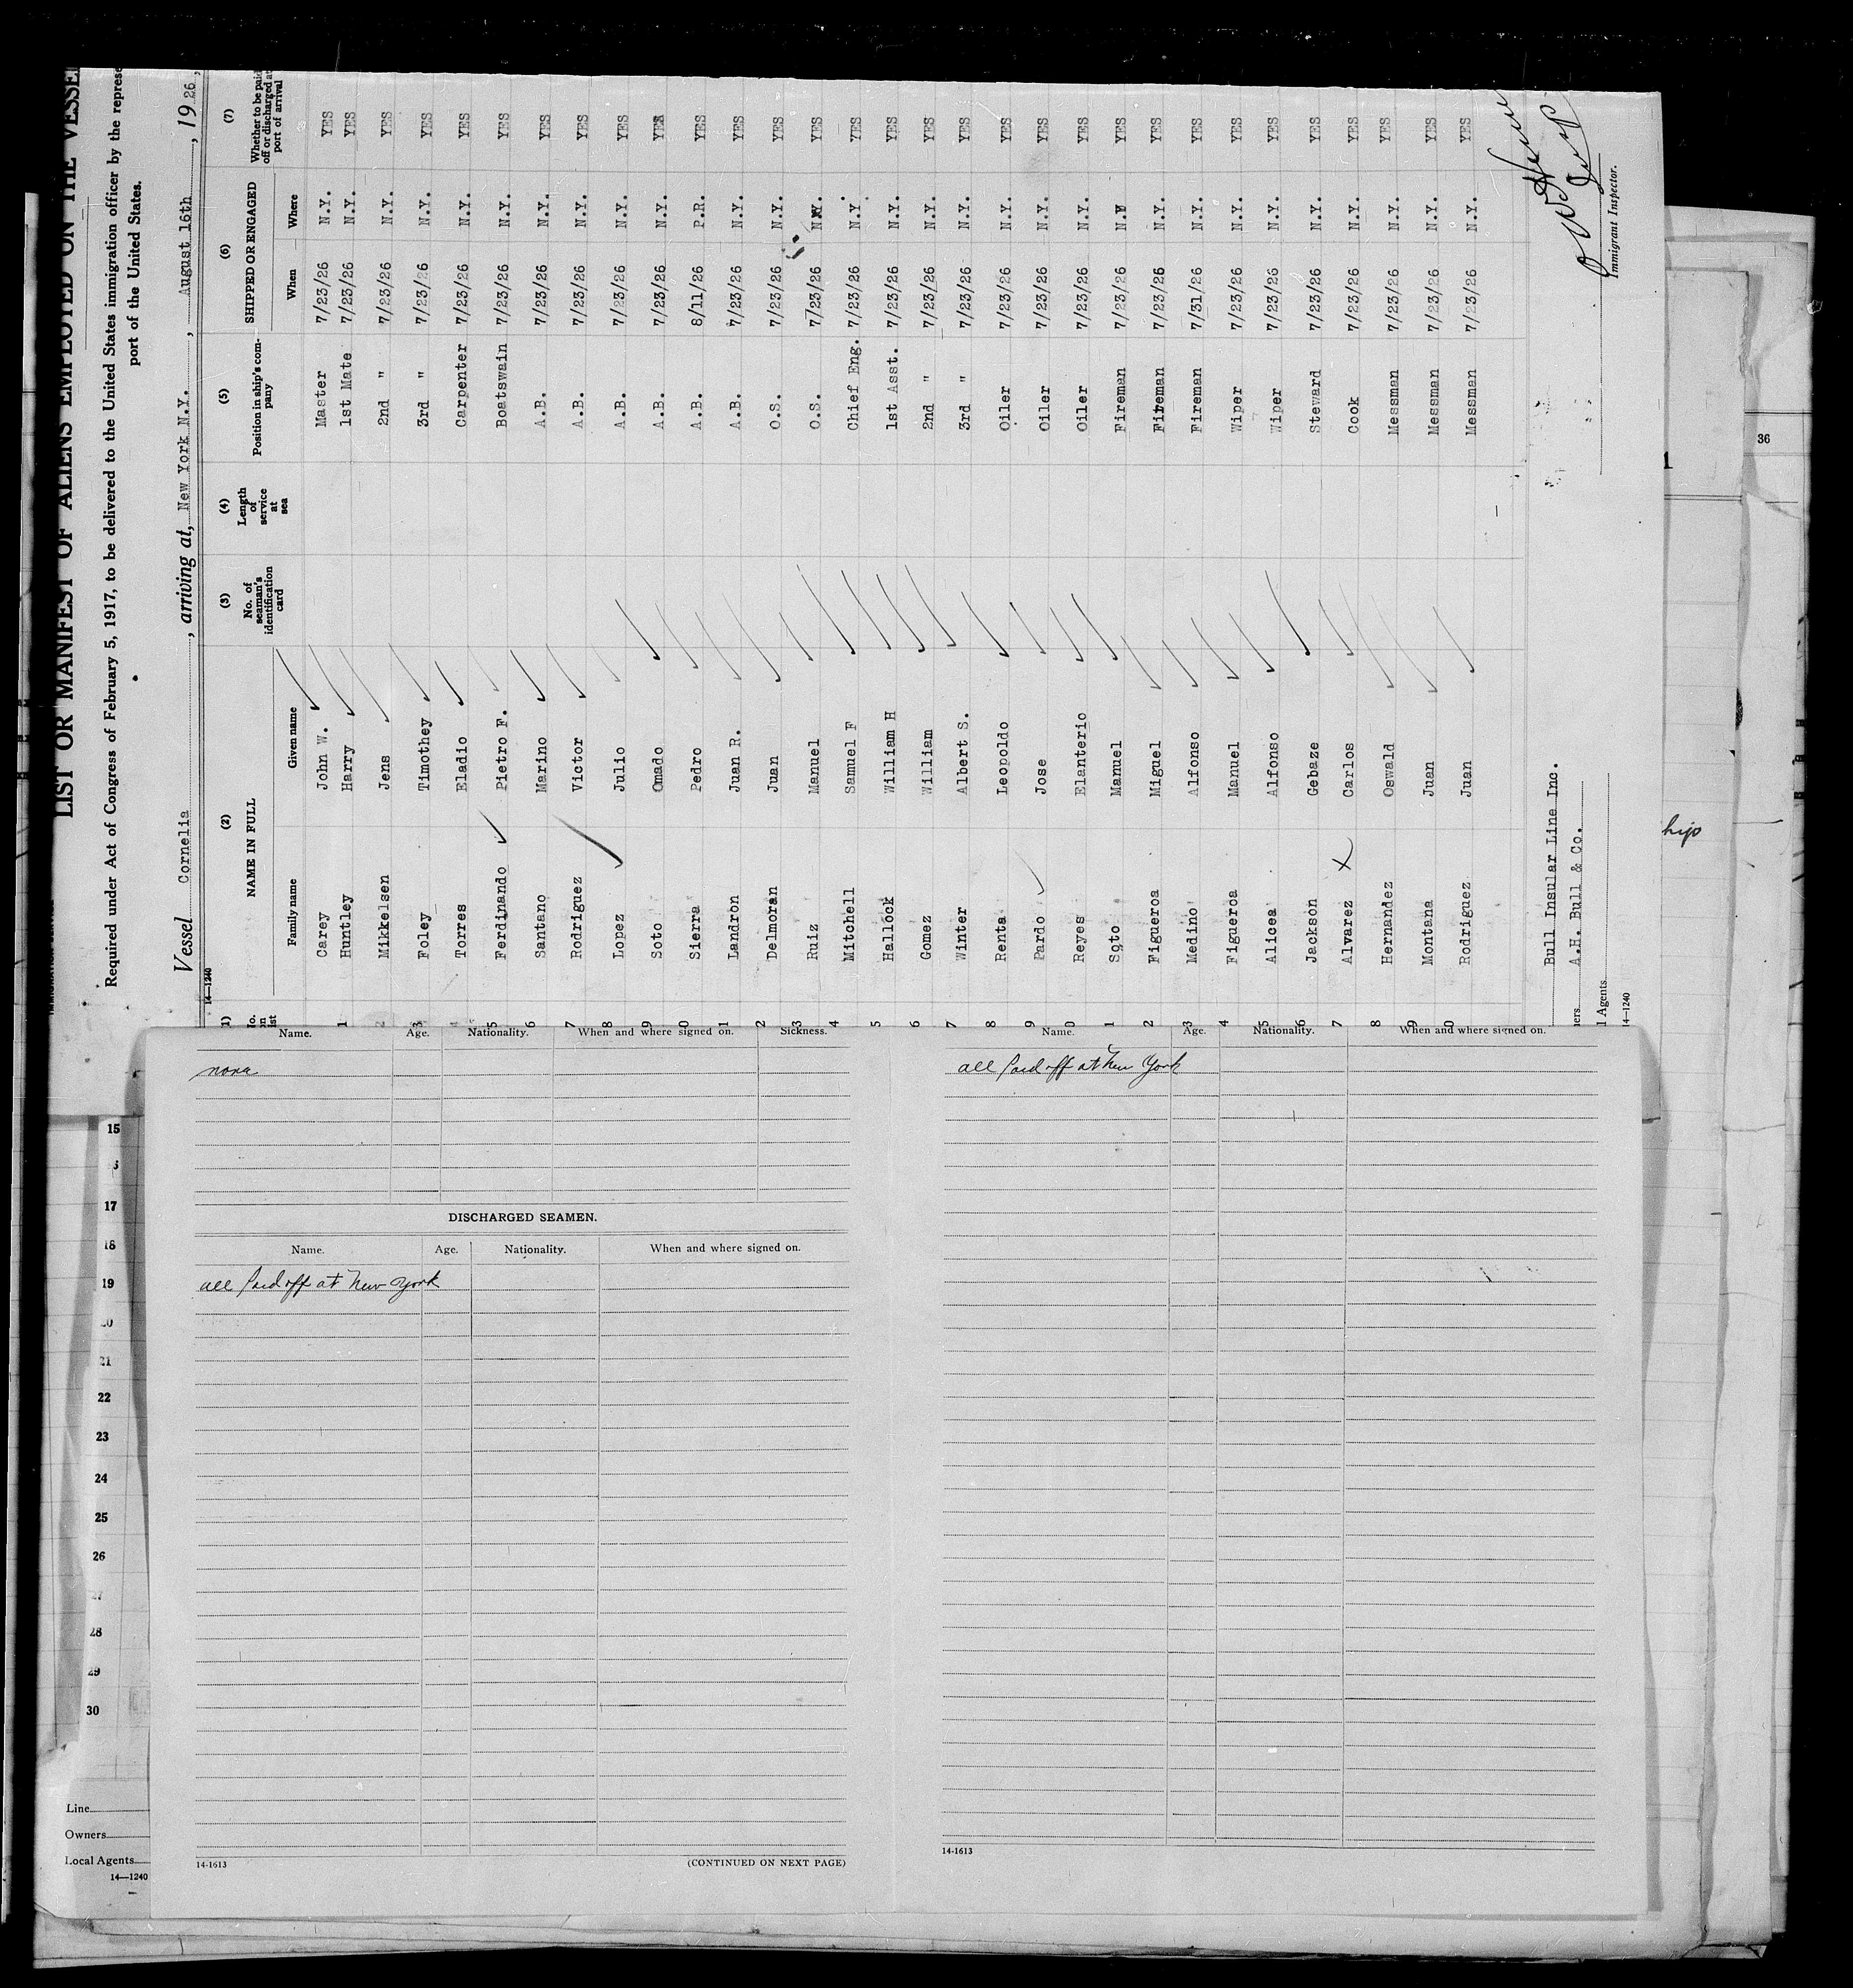 LIST OR MANIFEST OF ALIENS EMPLOYED ON THE VESSEL
Required under Act of Congress of February 5, 1917, to be delivered to the United States immigration officer by the represe
port of the United States.
Vessel Cornelia, arriving at, New York N.Y., August 16th, 1926,
14—1240
(2) (3) (4) (5) (6) (7)
NAME IN FULL No. of seaman's identification card Length of service at sea Position in ship's company SHIPPED OR ENGAGED Whether to be paid off or discharged at port of arrival
Family name Given name When Where
Carey John W. Master 7/23/26 N.Y. YES
1 Huntley Harry 1st Mate 7/23/26 N.Y. YES
2 Mikkelsen Jens 2nd " 7/23/26 N.Y. YES
3 Foley Timothey 3rd " 7/23/26 N.Y. YES
4 Torres Eladio Carpenter 7/23/26 N.Y. YES
5 Ferdinando Pietro F. Boatswain 7/23/26 N.Y. YES
6 Santano Marino A.B. 7/23/26 N.Y. YES
7 Rodriguez Victor A.B. 7/23/26 N.Y. YES
8 Lopez Julio A.B. 7/23/26 N.Y. YES
9 Soto Omado A.B. 7/23/26 N.Y. YES
0 Sierra Pedro A.B. 8/11/26 P.R. YES
1 Landron Juan R. A.B. 7/23/26 N.Y. YES
2 Delmoran Juan O.S. 7/23/26 N.Y. YES
3 Ruiz Manuel O.S. 7/23/26 N.Y. YES
4 Mitchell Samuel F Chief Eng. 7/23/26 N.Y. YES
5 Hallock William H 1st Asst. 7/23/26 N.Y. YES
6 Gomez William 2nd " 7/23/26 N.Y. YES
7 Winter Albert S. 3rd " 7/23/26 N.Y. YES
8 Renta Leopoldo Oiler 7/23/26 N.Y. YES
9 Pardo Jose Oiler 7/23/26 N.Y. YES
0 Reyes Elanterio Oiler 7/23/26 N.Y. YES
1 Soto Manuel Fireman 7/23/26 N.Y YES
2 Figueroa Miguel Fireman 7/23/26 N.Y. YES
3 Medino Alfonso Fireman 7/31/26 N.Y. YES
4 Figueroa Manuel Wiper 7/23/26 N.Y. YES
5 Alicea Alfonso Wiper 7/23/26 N.Y. YES
6 Jackson Gebaze Steward 7/23/26 N.Y. YES
7 Alvarez Carlos Cook 7/23/26 N.Y. YES
8 Hernandez Oswald Messman 7/23/26 N.Y. YES
9 Montana Juan Messman 7/23/26 N.Y. YES
0 Rodriguez Juan Messman 7/23/26 N.Y. YES
Bull Insular Line Inc.
A.H. Bull & Co.
l Agents
14—1240
Immigrant Inspector.
36
hip
Name. Age. Nationality. When and where signed on. Sickness.
none
DISCHARGED SEAMEN.
Name. Age. Nationality. When and where signed on.
all paid off at New York
14-1613
(CONTINUED ON NEXT PAGE)
Name. Age. Nationality. When and where signed on.
all paid off at New York
14-1613
15
17
18
19
21
22
23
24
25
26
27
28
29
30
Line
Owners
Local Agents
14—1240